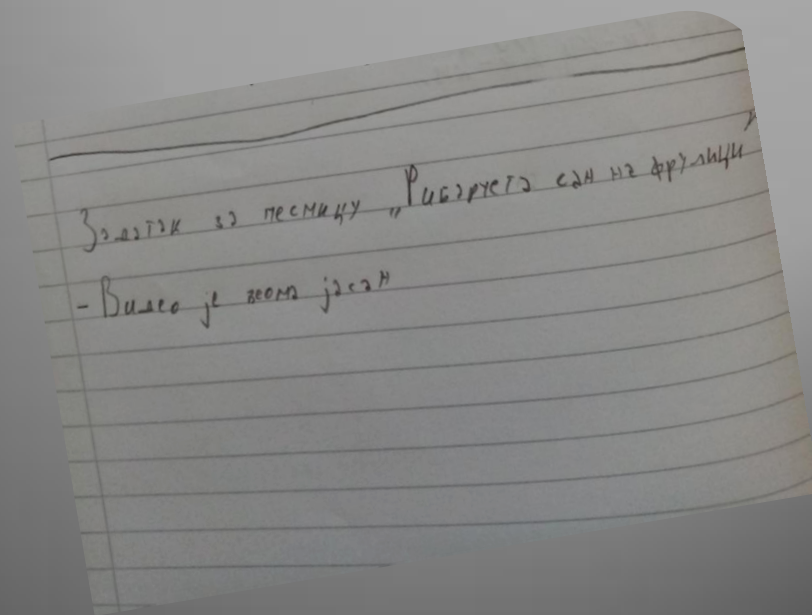 Задатак за песмицу „Рибарчета сан на фрулици”
- Видео је веома јасан